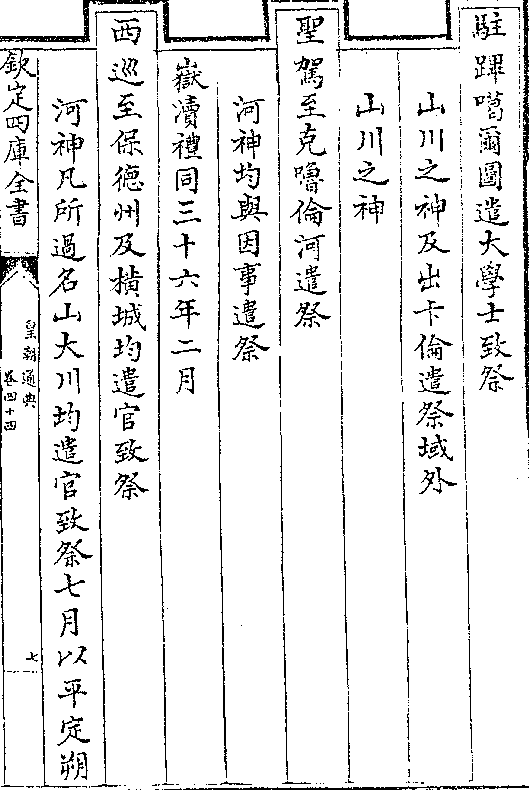 駐蹕噶爾圖遣大學士致祭
山川之神及出卡倫遣祭域外
山川之神
聖駕至克嚕倫河遣祭
河神均與因事遣祭
嶽瀆禮同三十六年二月
西巡至保德州及橫城均遣官致祭
河神凡所過名山大川均遣官致祭七月以平定朔
欽定四庫全書
皇朝通典
卷四十四
七